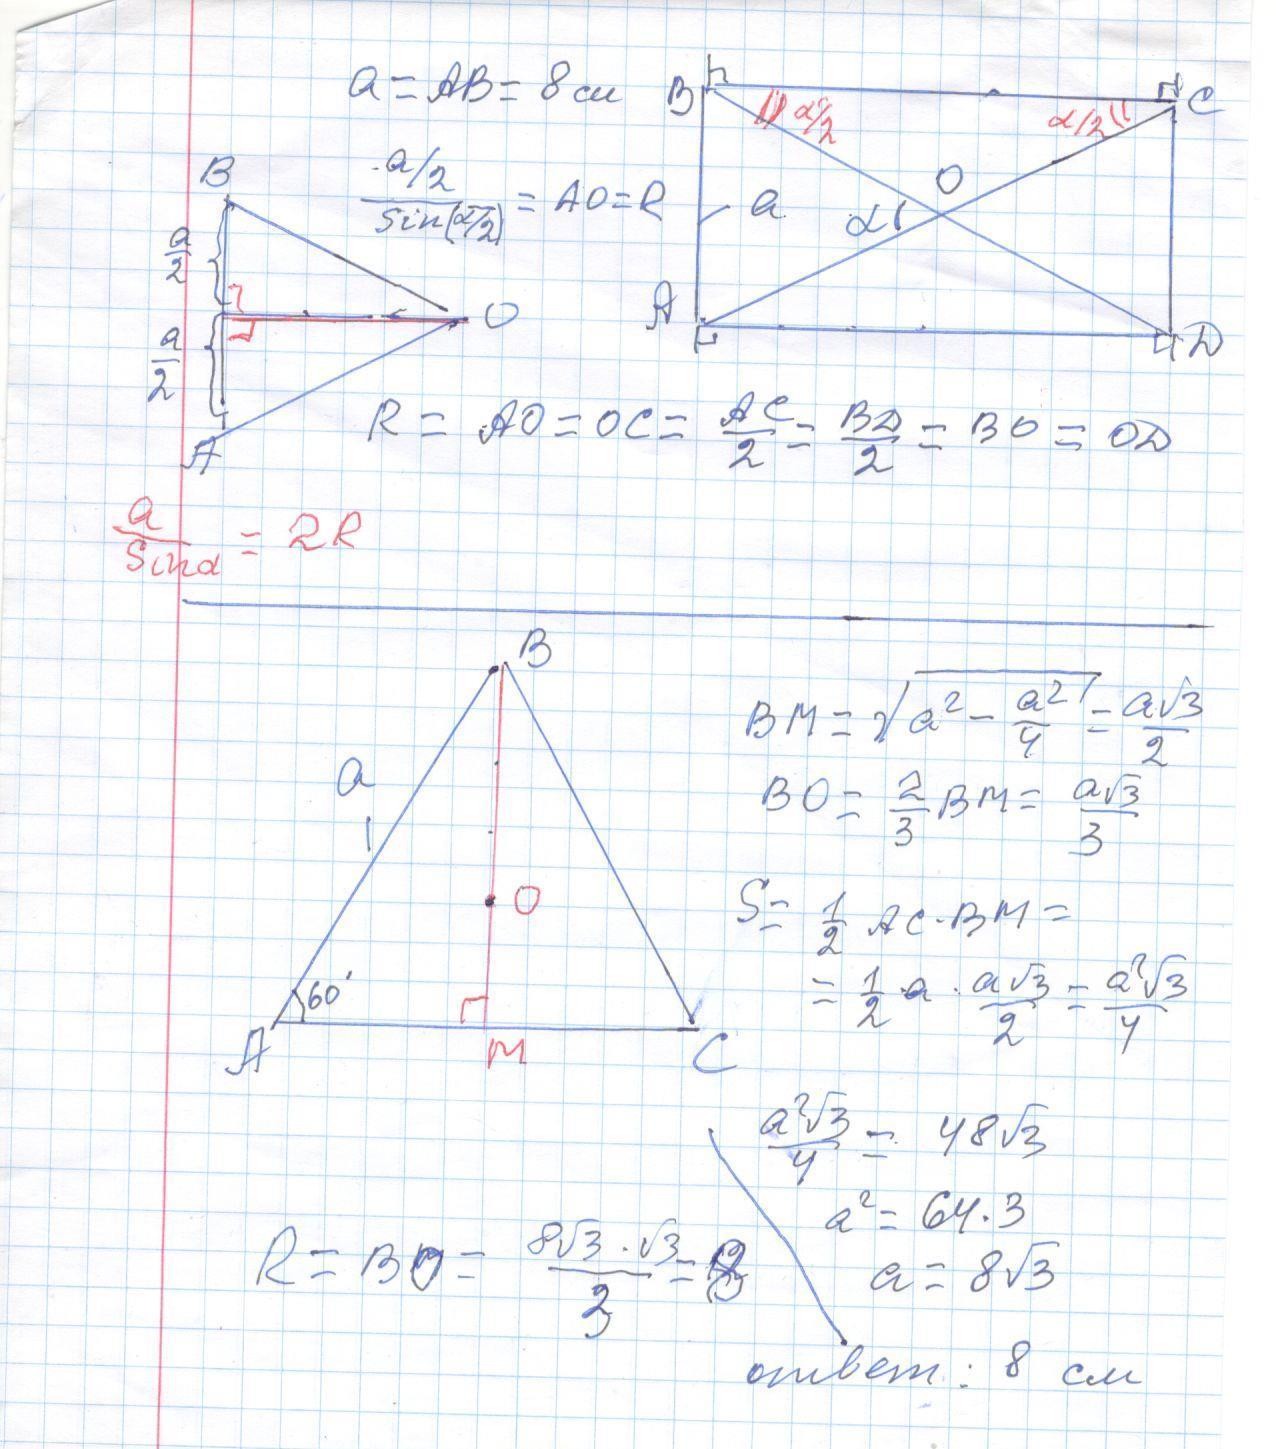 a = AB = 8 см
B
C
α/2
α/2
a/2 / sin(α/2) = AO = R
a
O
α
B
a/2
a/2
O
A
A
D
R = AO = OC = AC/2 = BD/2 = BO = OD
a / sin α = 2R
B
BM = √(a² - a²/4) = a√3/2
a
BO = 2/3 BM = a√3/3
O
S = 1/2 AC · BM =
= 1/2 · a · a√3/2 = a²√3/4
60°
A
M
C
a²√3/4 = 48√3
a² = 64 · 3
a = 8√3
R = BO = 8√3 · √3 / 3 = 8
ответ: 8 см